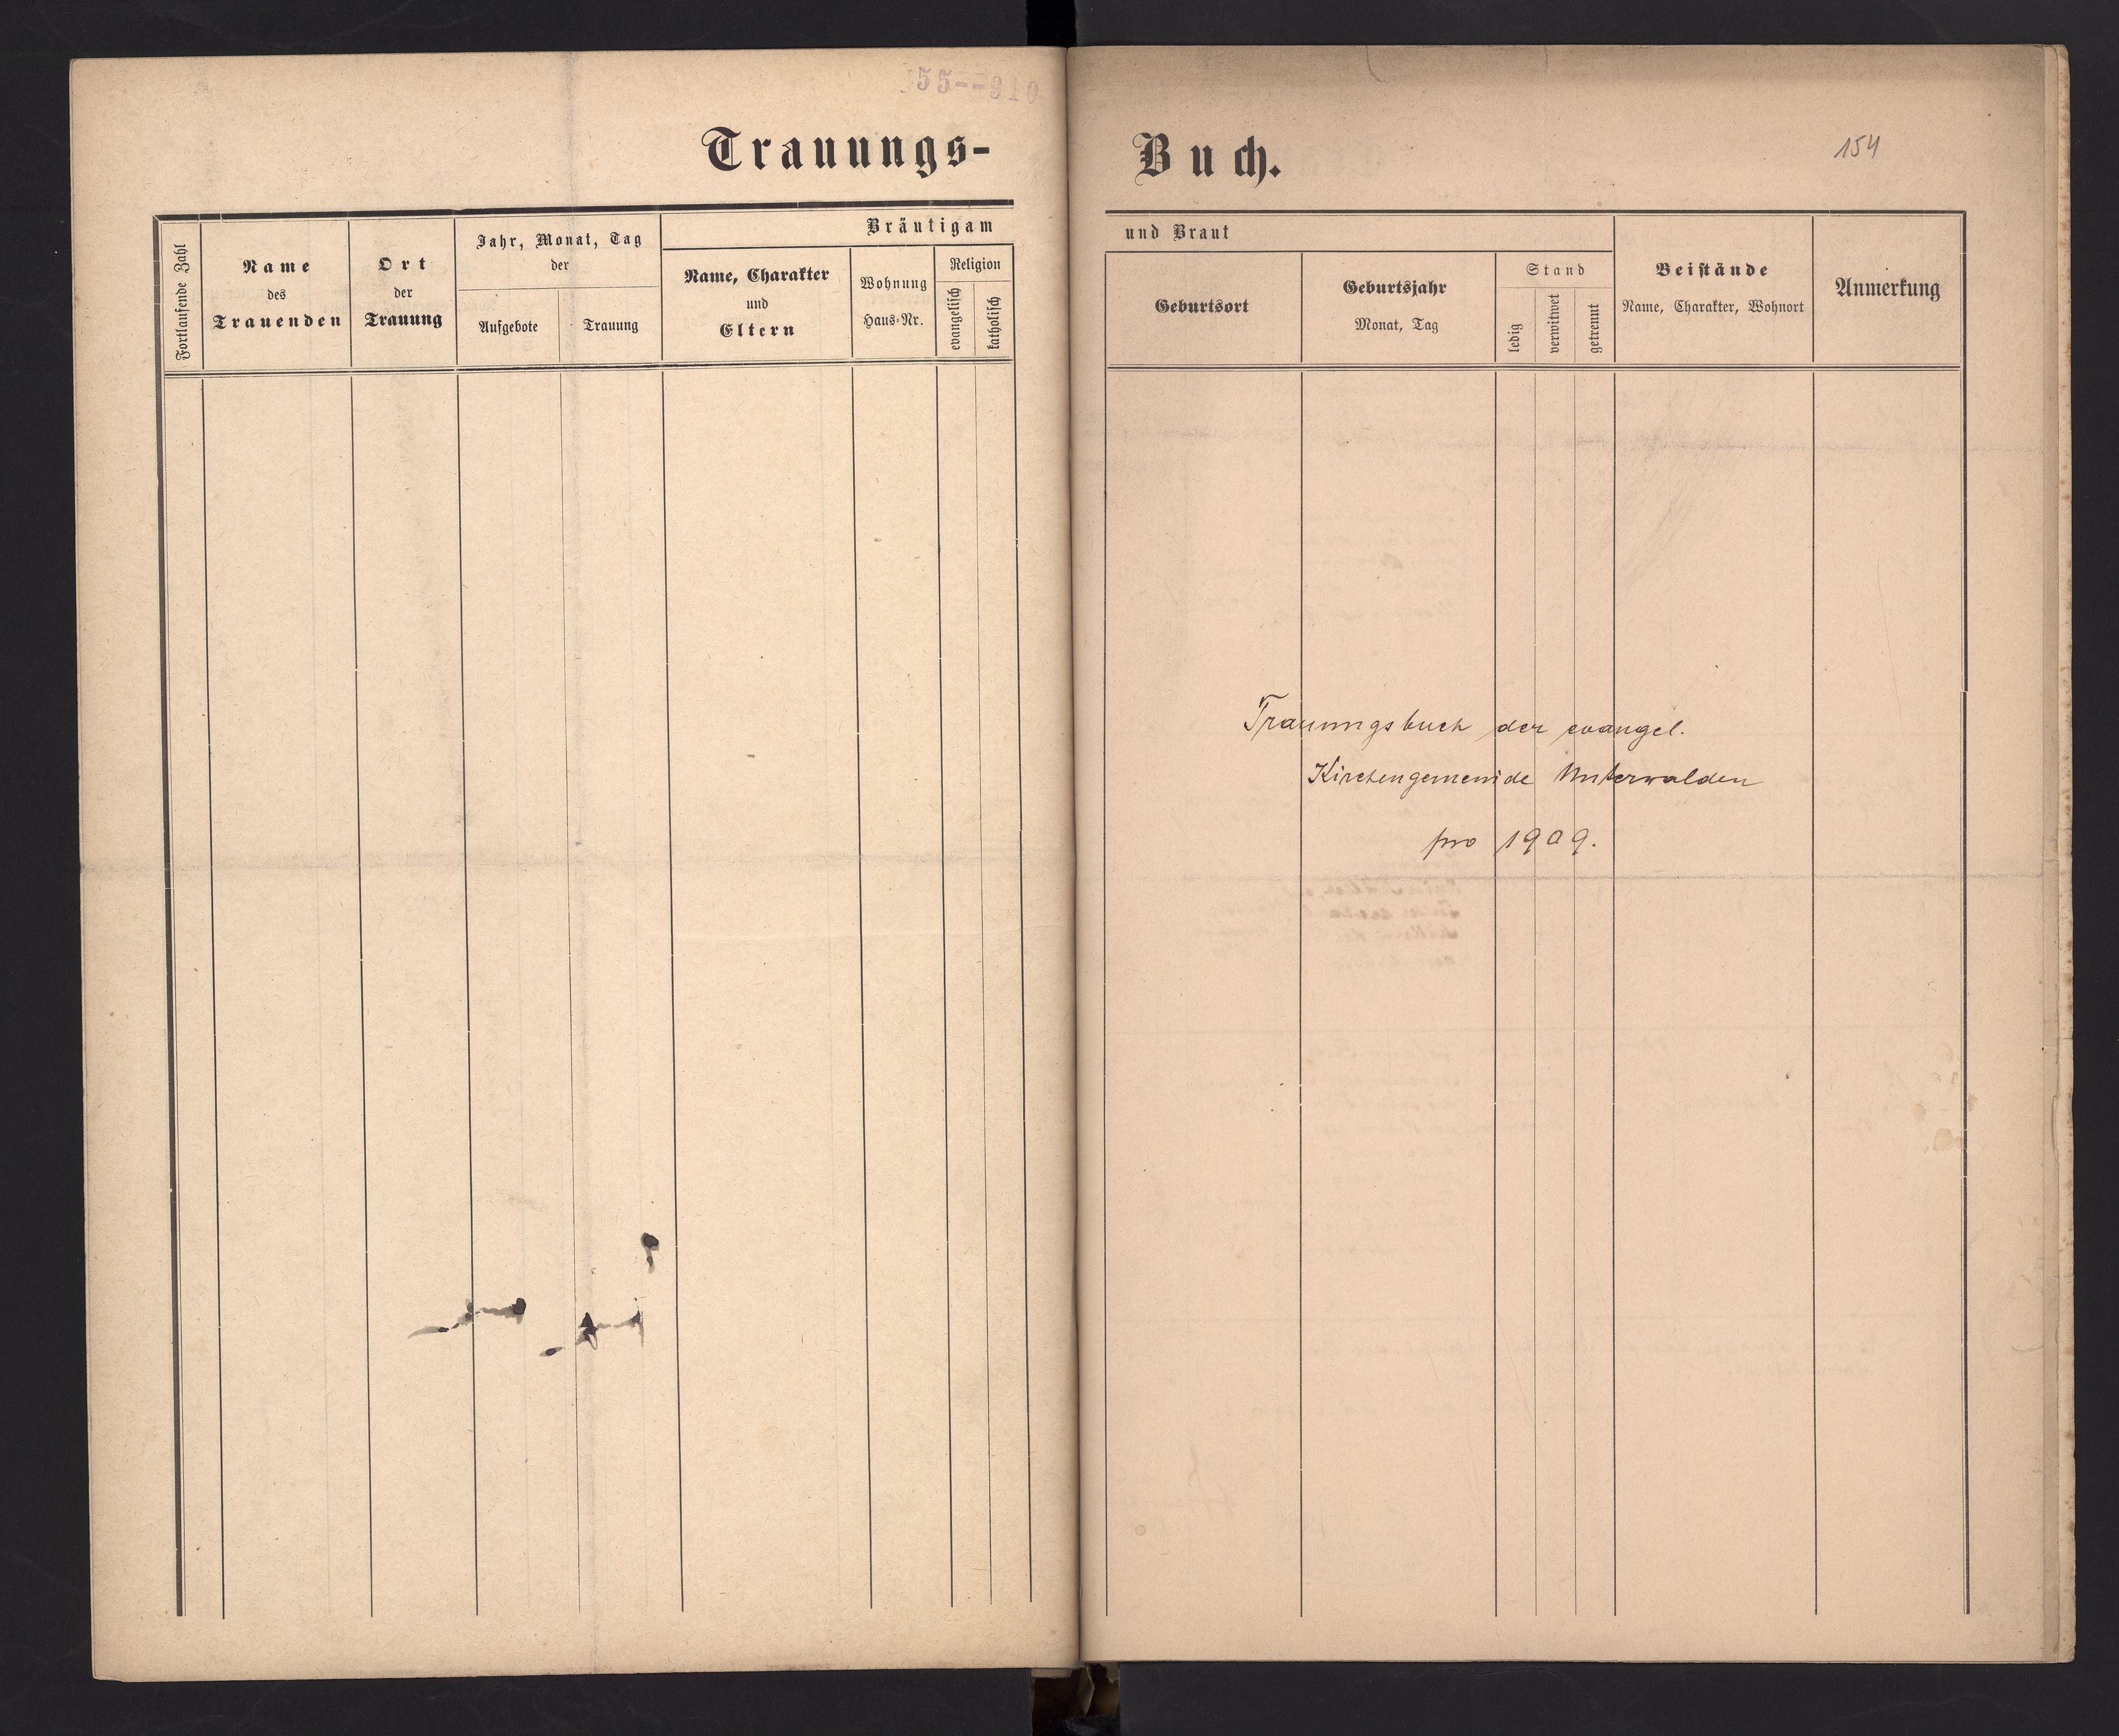 55--910
Trauungs-
Fortlaufende Zahl
Name
des
Trauenden
Ort
der
Trauung
Jahr, Monat, Tag
der
Aufgebote
Trauung
Bräutigam
Name, Charakter
und
Eltern
Wohnung
Haus-Nr.
Religion
evangelisch
katholisch
Buch.
154
und Braut
Geburtsort
Geburtsjahr
Monat, Tag
Stand
ledig
verwitwet
getrennt
Beistände
Name, Charakter, Wohnort
Anmerkung
Trauungsbuch der evangel.
Kirchengemeinde Unterwalden
pro 1909.